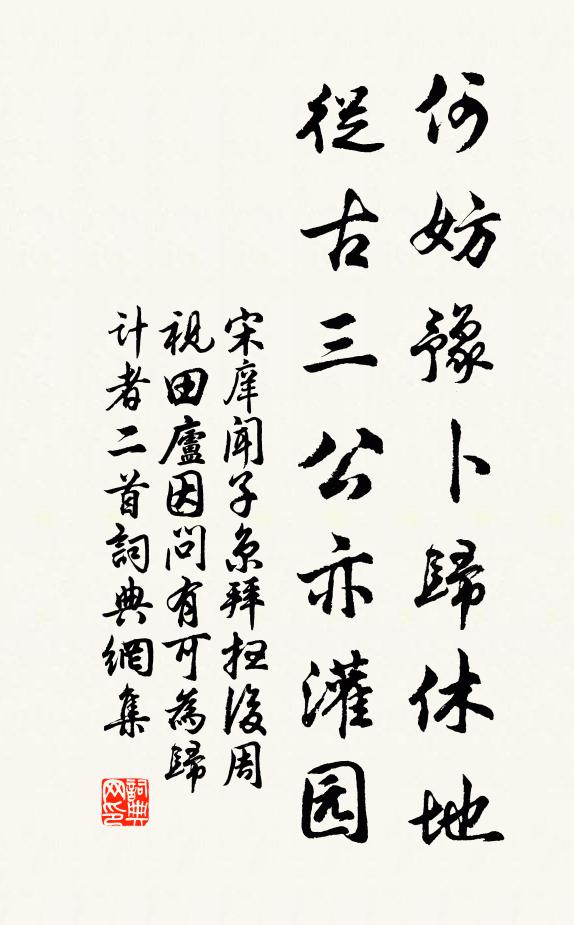 何妨豫卜歸休地
從古三公亦灌园
宋庠聞子京拜扫後周
視田廬因問有可為歸
计者二首詞典網集
詞典网